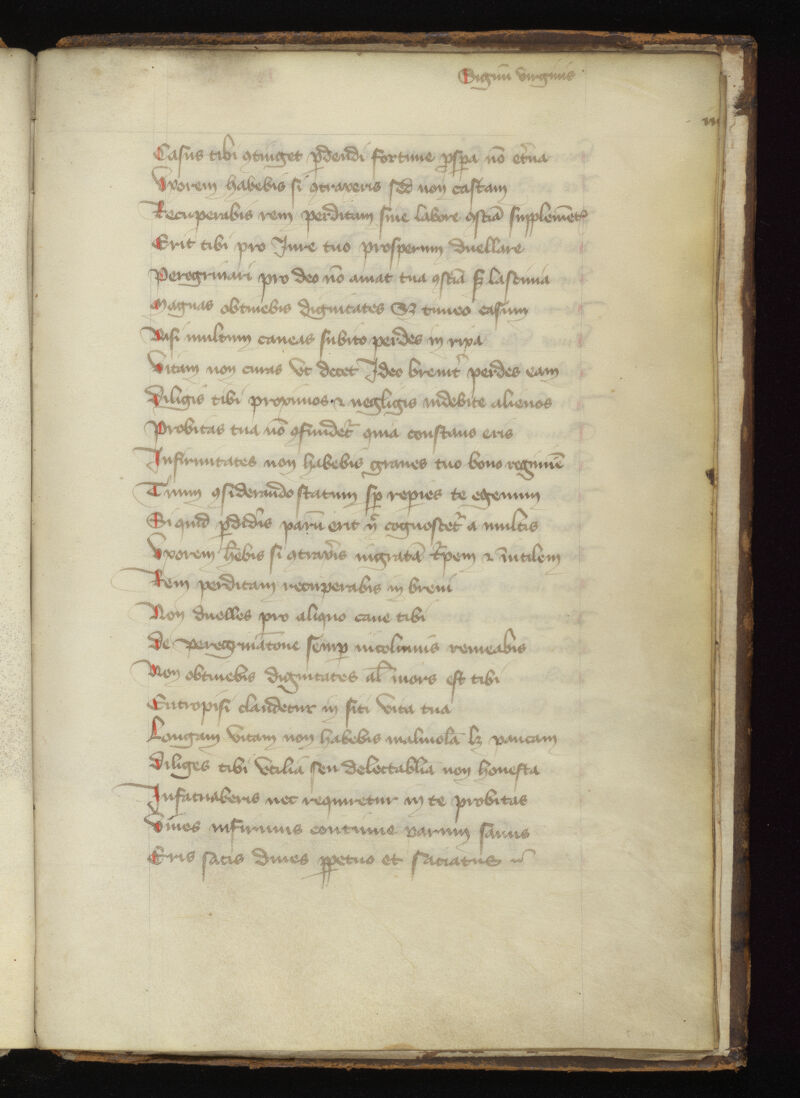 Signũ virginis
iii
Casus tibi ɔtinget p̱dendi fortune ꝓsp̱a nõ et̾na
Uxorem habebis si ɔtraxeris sed non castam
Recuperabis rem perditam sine labore
Erit tibi pro Jure tuo prosperum duellare
Peregrinari pro deo nõ amat tua
Magnas obtinebis dignitates Sꝫ timeo casum
Nasi multum caveas subito perdes in rixa
Vitam non curas ut decet Ideo brevit̾ perdes eam
Diligis tibi proximos ⁊ negligis indebite alienos
Probitas tua nõ ɔfundet̾ quia constans eris
Infirmitates non habebis graves tuo bono regimĩe
Tuum ɔsiderando statum sp̱ reperies te egenum
Si quid p̱did̾is parũ erit cognoscet̾ a multis
Uxorem h̾ebis si ɔtrax̾is ingratã t̾pem ⁊ ĩutilem
Rem perditam recuperabis in brevi
Non duelles pro aliquo cave tibi
De peregrinatõne semp̱ incolumis remeabis
Non obtinebis dignitates al̾ mors est tibi
Eutropisi claudetur in siti vita tua
Longam vitam non habebis malivolã lꝫ paucam
Diliges tibi utiliã seu delectabliã non honesta
Infatuaberis nec requiretur in te probitas
Vives infirmus continue parum sanus
Eris satis dives p̱petuo et saciatus